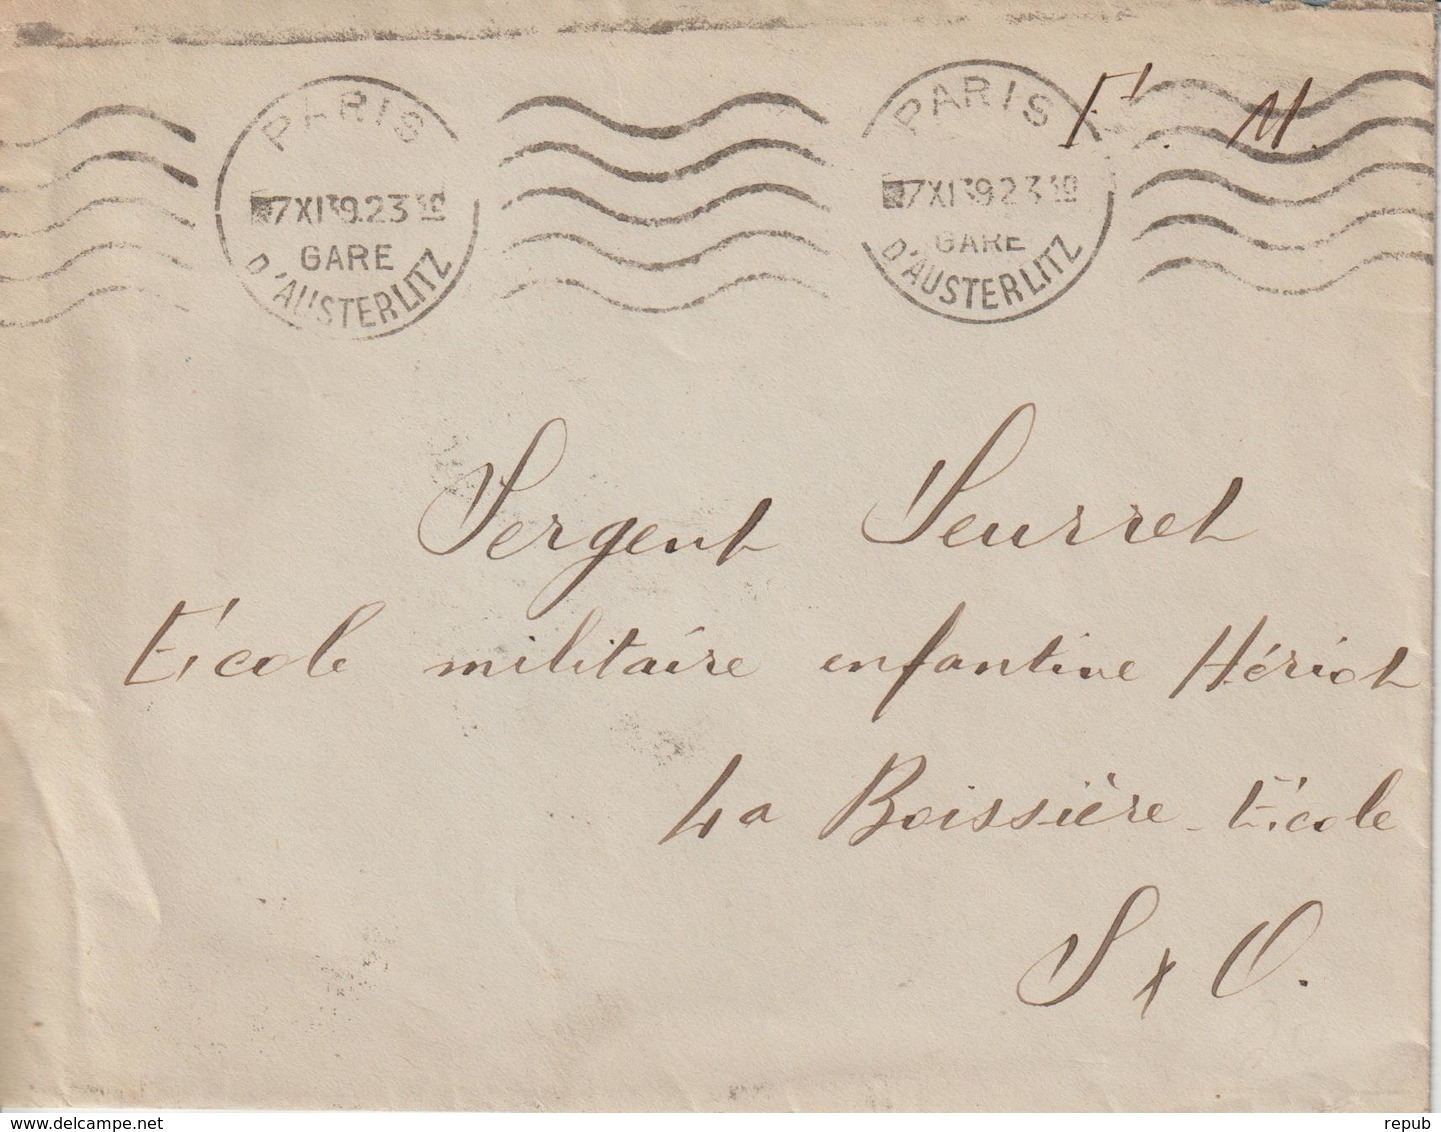 PARIS
7XI39.23 30
GARE
D'AUSTERLITZ
PARIS
7XI39.23 30
GARE
D'AUSTERLITZ
F. M.
Sergent Seurret
École militaire enfantine Hériot
La Boissière-École
S & O.
www.delcampe.net
repub